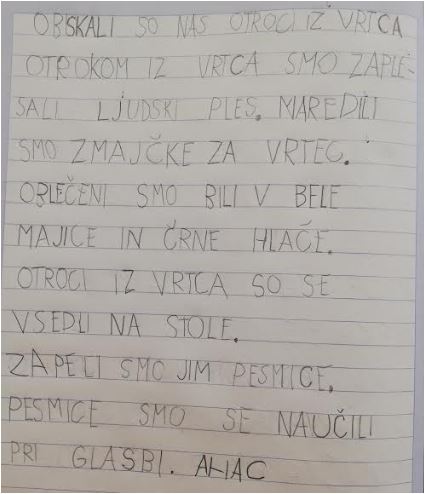 OBSKALI SO NAS OTROCI IZ VRTCA
OTROKOM IZ VRTCA SMO ZAPLE-
SALI LJUDSKI PLES. MAREDILI
SMO ZMAJČKE ZA VRTEC.
OBLEČENI SMO BILI V BELE
MAJICE IN ČRNE HLAČE.
OTROCI IZ VRTCA SO SE
VSEDLI NA STOLE.
ZAPELI SMO JIM PESMICE.
PESMICE SMO SE NAUČILI
PRI GLASBI.